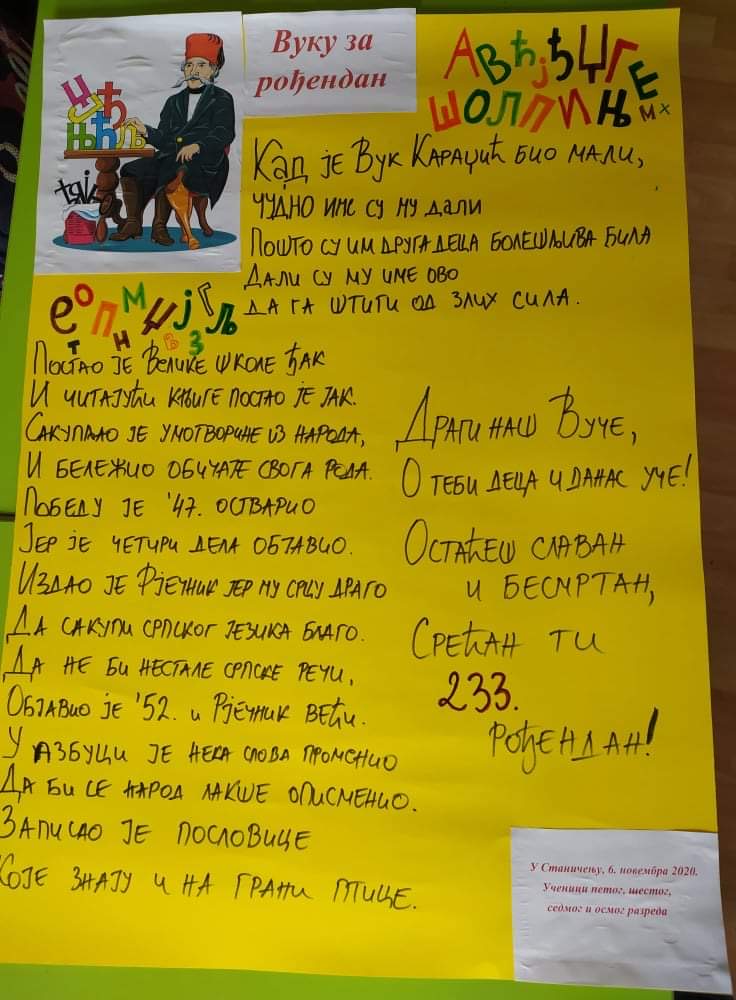 Вуку за
рођендан
А В Ћ Ј Ђ Џ Г Е
Ш О Л П И Њ М Х
Кад је Вук Караџић био мали,
чудно име су му дали
Пошто су им друга деца болешљива била
Дали су му име ово
да га штити од злих сила.
е О П М Џ Ј Г Љ
Т Н В З
Постао је Велике школе ђак
И читајући књиге постао је јак.
Сакупљао је умотворине из народа,
И бележио обичаје свога рода.
Победу је '47. остварио
Јер је четири дела објавио.
Издао је Рјечник јер му срцу драго
Да сакупи српског језика благо.
Да не би нестале српске речи,
Објавио је '52. и Рјечник већи.
У азбуци је нека слова променио
Да би се народ лакше описменио.
Записао је пословице
Које знају и на грани птице.
Драги наш Вуче,
О теби деца и данас уче!
Остаћеш славан
и бесмртан,
Срећан ти
233.
рођендан!
У Станичењу, 6. новембра 2020.
Ученици петог, шестог,
седмог и осмог разреда